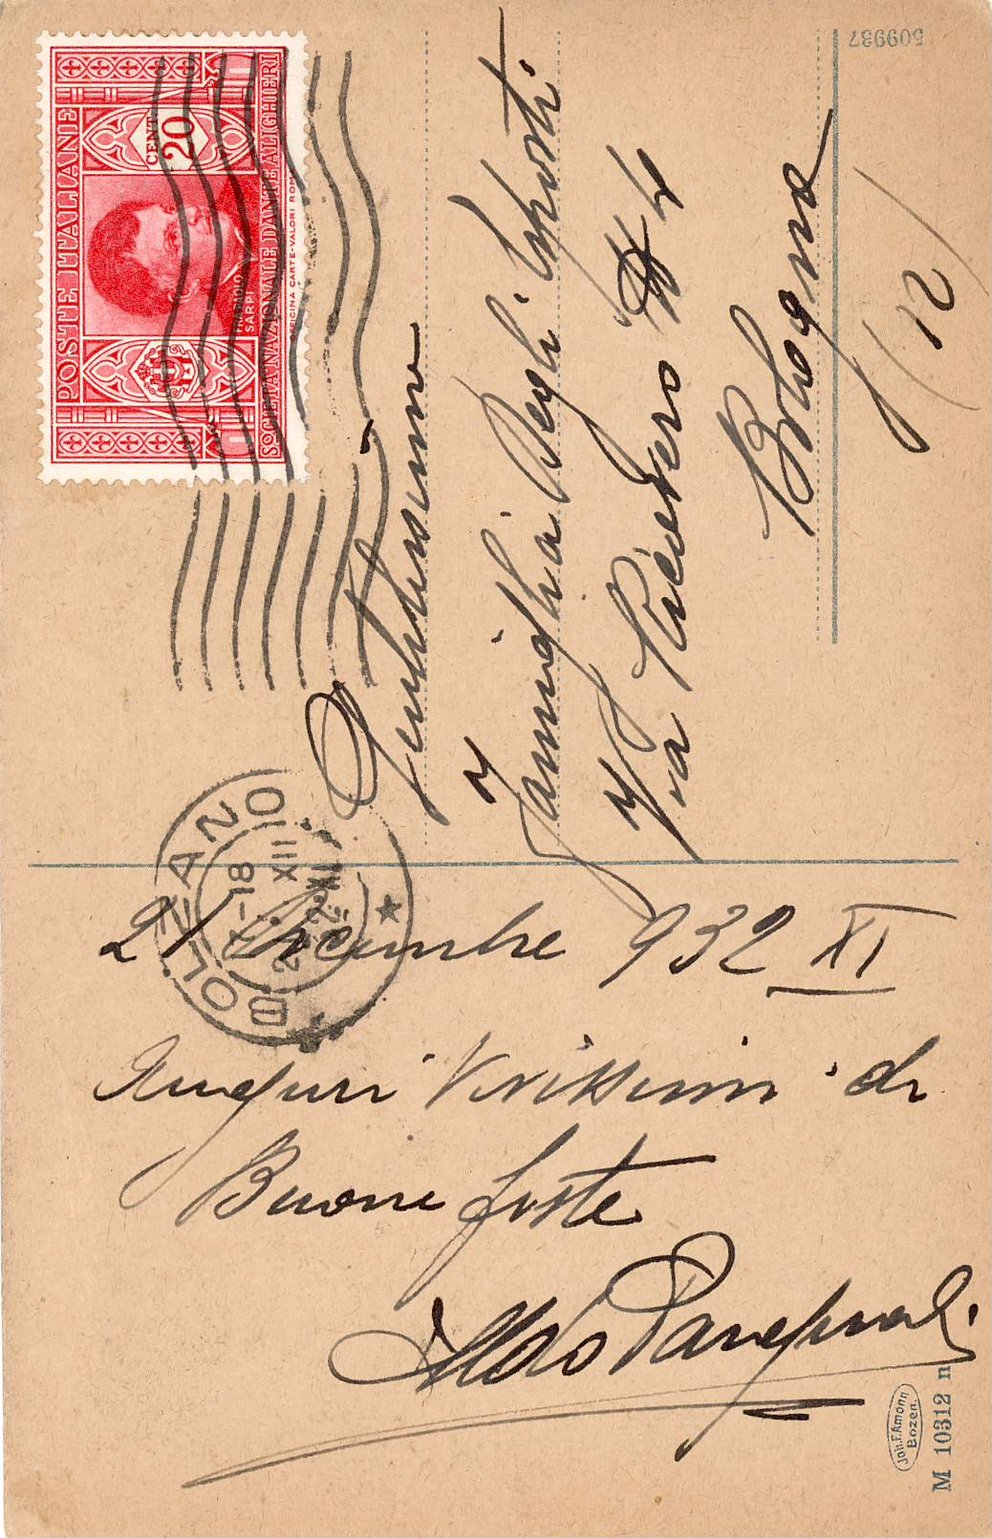 POSTE ITALIANE
CENT 20
PAOLO
SARPI
SOCIETÀ NAZIONALE DANTE ALIGHIERI
OFFICINA CARTE-VALORI ROMA
509937
BOLZANO
17-18
XII
Gentilissima
Famiglia Degli Esposti
Via
N 4
Bologna
(12)
21 Dicembre 932 XI
Auguri Vivissimi di
Buone feste
Aldo
Joh. F. Amonn
Bozen.
M 10312 n